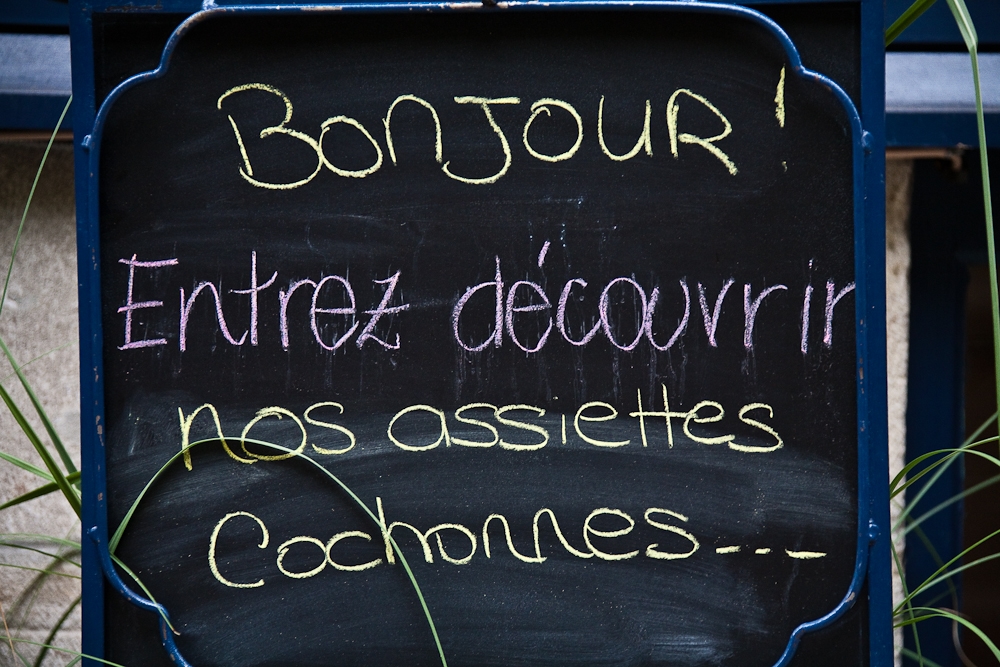 BonJour!
Entrez découvrir
nos assiettes
Cochonnes...